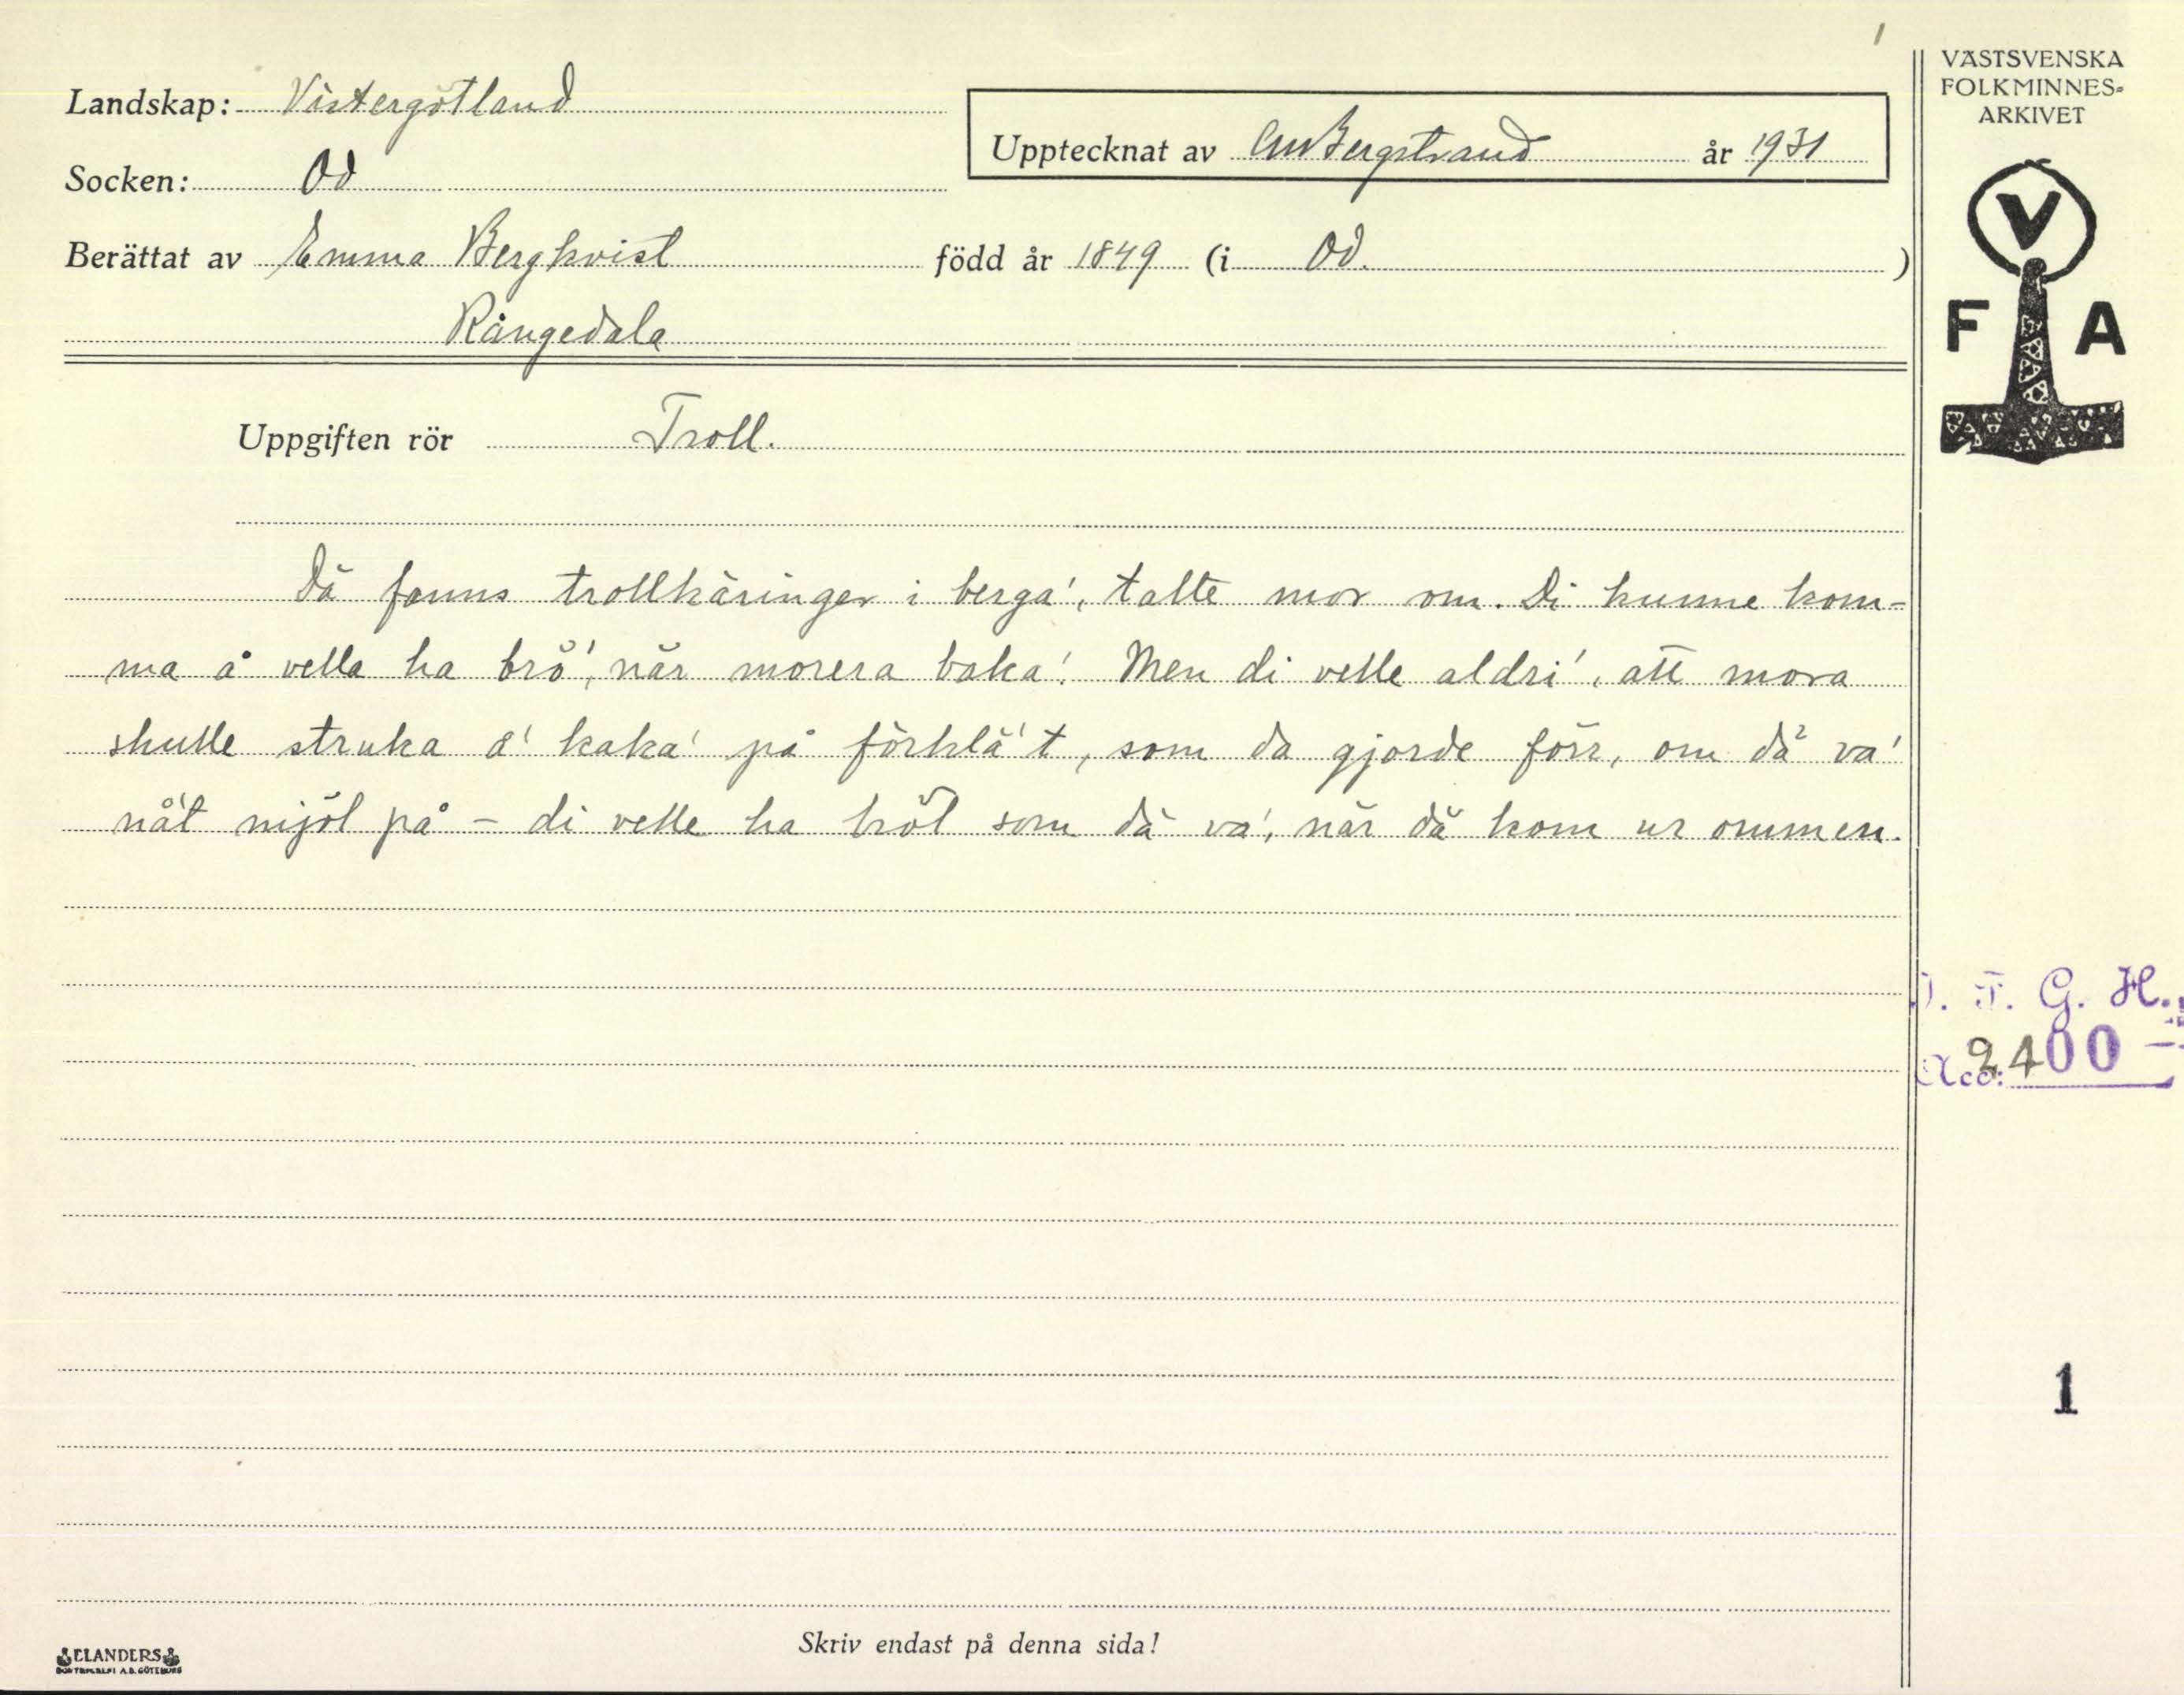 1
VÄSTSVENSKA
FOLKMINNES-
ARKIVET
Landskap: Västergötland
Upptecknat av CM Bergstrand år 1931
Socken: Od
Berättat av Emma Bergkvist född år 1849 (i Od. )
Rångedala
V
F A
Uppgiften rör Troll.
Dä fanns trollkäringer i berga', talte mor om. Di kunne kom-
ma å vella ha brö', när morera baka'. Men di velle aldri', att mora
skulle struka a' kaka' på förklä't, som da gjorde förr, om dä va'
nå't mjöl på - di velle ha bröt som dä va', när dä kom ur ommen.
. F. G. H.
Acc: 2400
1
Skriv endast på denna sida!
ELANDERS
BOKTRYCKERI A.B. GÖTEBORG